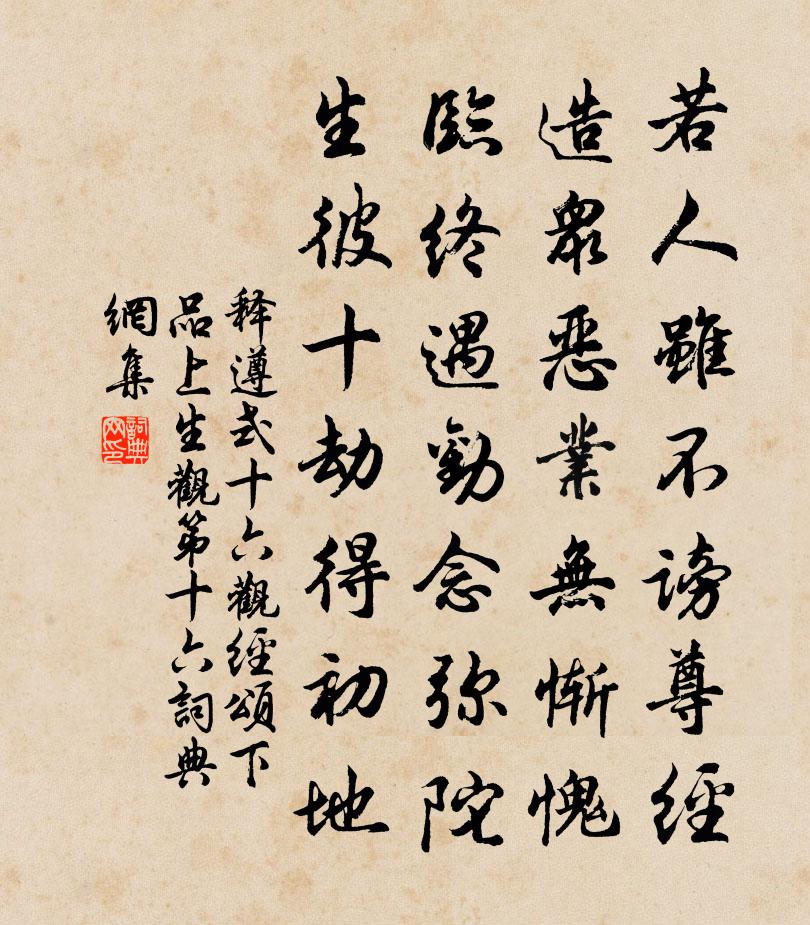 若人雖不謗尊經
造眾惡業無慚愧
臨終遇勸念弥陀
生彼十劫得初地
释遵式十六觀經頌下
品上生觀第十六詞典
網集
詞典
网印